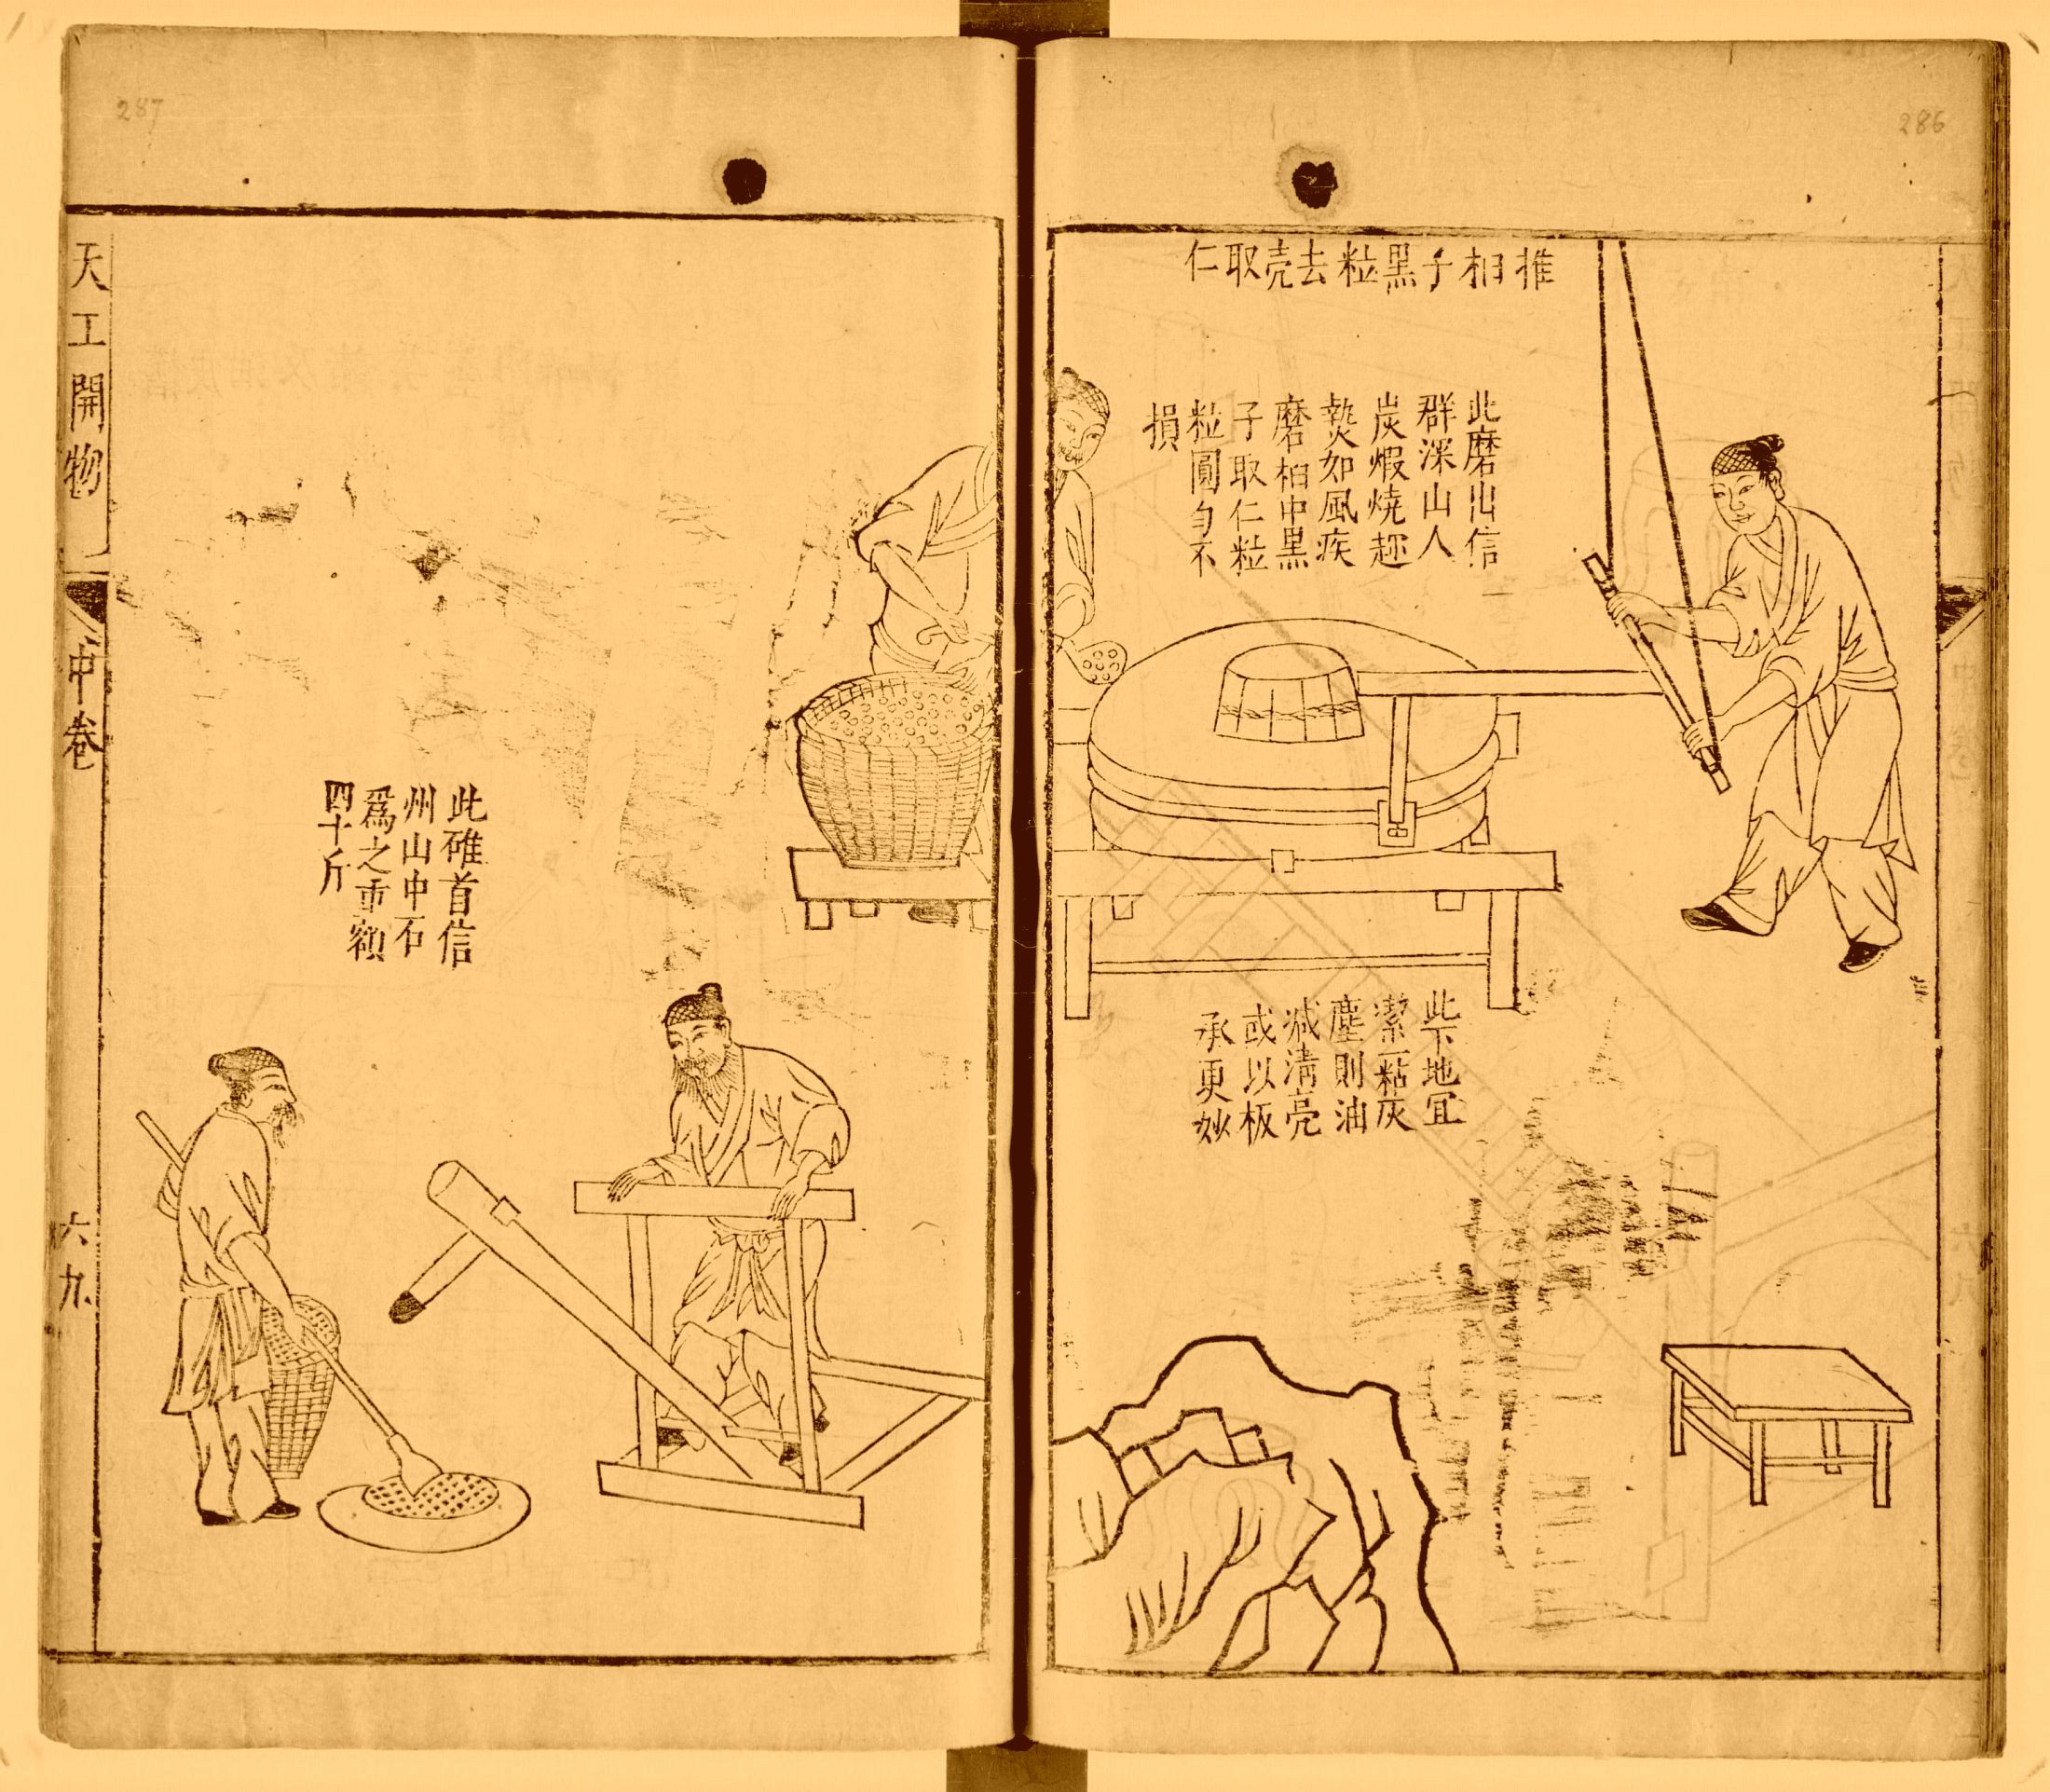 286
推桕子黑粒去壳取仁
此磨出信
群深山人
炭煆燒
熱如風疾
磨桕中黑
子取仁粒
粒圓勻不
損
此下地冝
潔一粘灰
塵則油
減清亮
或以板
承更妙
287
此碓首信
州山中石
爲之重
四十斤
天工開物
中卷
六九